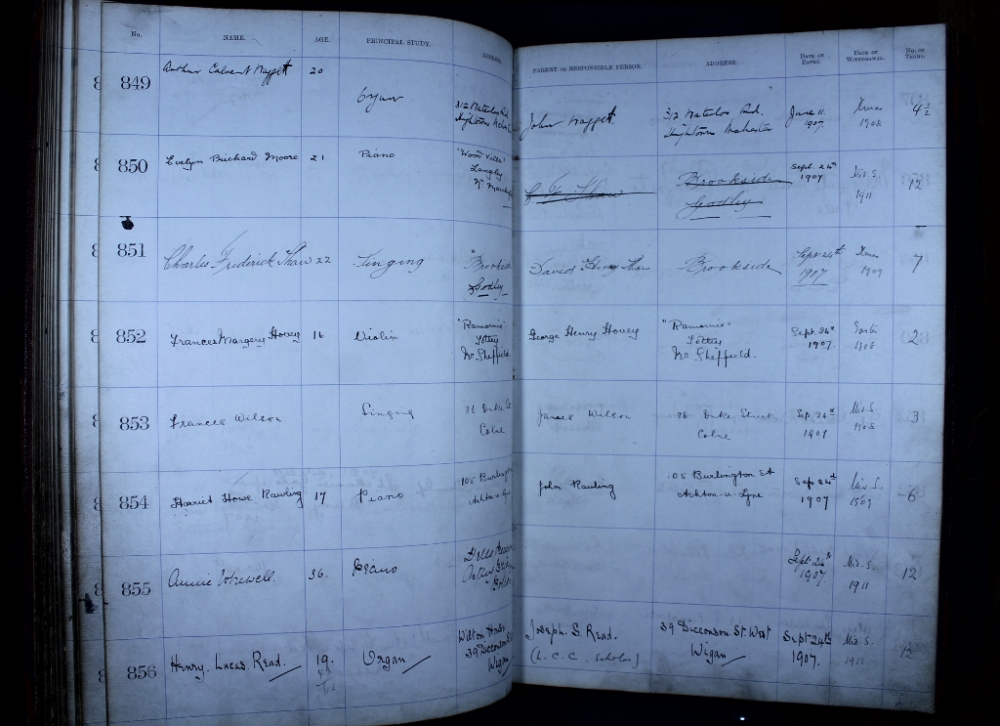 No. NAME. AGE. PRINCIPAL STUDY. ADDRESS. PARENT OR RESPONSIBLE PERSON. ADDRESS. DATE OF ENTRY. DATE OF WITHDRAWAL. No. OF TERMS.
849 Arthur Calvert 20 Organ
312 Waterloo Rd.
John 312 Waterloo Rd. June 11 1907. Xmas 1908
Hightown Manchester
850 Evelyn Prichard Moore 21 Piano "Wood Villa"
Langley
Brookside Godley Sept. 24th 1907 Mid. S. 1911 12
851 Charles Frederick Shaw 22 Singing "Brookside
Godley
David Henry Shaw Brookside Sept 24th 1907 Xmas 1909 7
852 Frances Margery Hovey 16 Violin "Ramornie"
Totley
Nr. Sheffield
George Henry Hovey "Ramornie"
Totley
Nr. Sheffield. Sept. 24th 1907. 1908 2
853 Frances Wilson Singing Duke St
Colne
James Wilson Duke Street
Colne Sep. 24th Mid. S. 1908 3
854 Harriet Howe Rawling 17 Piano 105 Burlington
John Rawling 105 Burlington St
Ashton-u-Lyne Sep 24th 1907 Mid. S. 1909 6
855 Annie Whewell. 36. Piano
Sept. 24th 1907. Mid. S. 1911 12
856 Henry Lucas Read. 19. Organ Wilton House
39 Dicconson St
Wigan
Joseph S. Read.
(L. C. C. Scholar) 39 Dicconson St. West
Wigan Sept 24th 1907. Mid. S. 1911 12